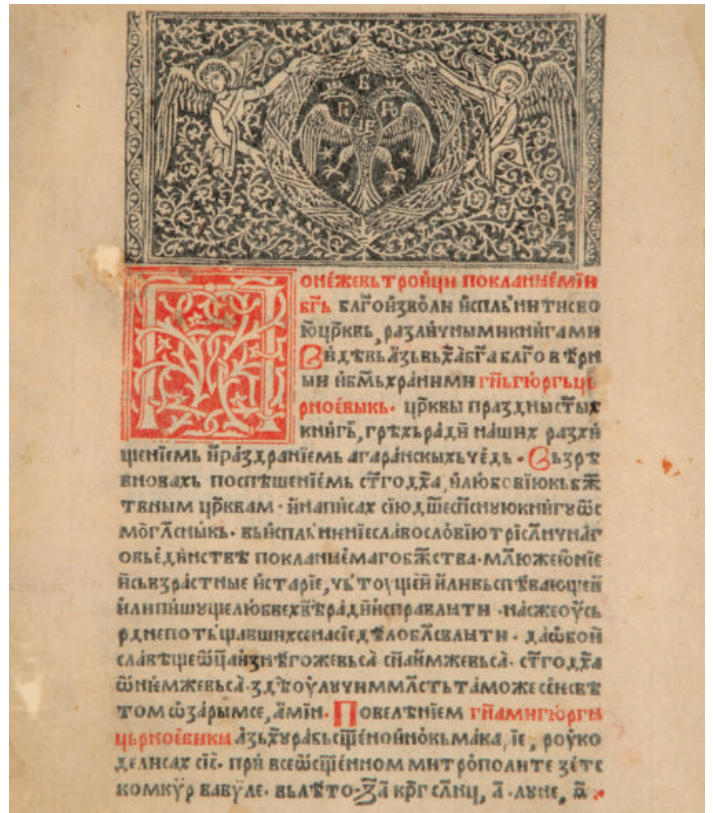 Понéжевь трои́ци покланѧе́мїи
бг҃ь бл҃гои́зволи и́спль́нити сво
ю҆ цр҃квь, разли́чными кни́гами
Ви́дѣвь а҆́зь вь х҃а б҃га бл҃говѣ́рн
ыи и҆ б҃мь хра́ними г҃нь гю́ргь цр
рное́выкь. цр҃квы праздны ст҃ых
кни́гь, грѣ́хь ра́ди на́ших расхи
щенїемь и҆ раздра́нїемь ага́ранскыхь че́дь. Вьзрѣ
вновахь поспѣше́нїемь ст҃го дх҃а, и҆ любовїю кь бж҃
твным цр҃квам. и҆ написах сїю дш҃еспсную кни́гу ѡс
мѡгл҃сникь. вь и҆спльнѥнїе славосло́вїю трїсл҃нчнаг
о вь е҆ди́нствѣ покланѧе́маго бж҃ства. мл҃ю же ю́нїе
и҆ сьвзра́стные и҆ ста́рїе, чьтоущеи́ и҆ли вьспѣва́ющеи
и҆ли пи́шуще любве х҃вѣ ра́ди и҆справлꙗти. на́сже оу҆сь
рдне потьща́вшихсе на сїе дѣ́ло бл҃свлꙗти. да ѡ҆бои
сла́вѣще ѿц҃а и҆з нѥго́же вьса̀ сн҃а и҆мже вьса̀. ст҃го дх҃а
ѡ҆ нѥ́мже вьса̀. здѣ оу҆лучим мл҃сть та́може се нь свѣ
том ѡ҆за́рымсе, а҆ми́н. Повелѣ́нїем г҃на ми гю́рги
црьное́викꙗ а҆зь х҃у ра́бь сщ҃еннои́нокь мака, їе, роу́ко
делисах сїѐ. при́ всеѡсщ҃е́нном митро́полите зе́тс
ком кѵ́р вавѵ́ле. вь лѣ́то ҂з҃а кр҃г сл҃нцꙋ, а҃. луне, а҃